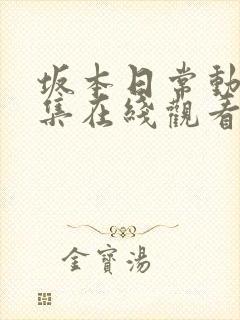 坂本日常動
集在綫觀看
金寶湯